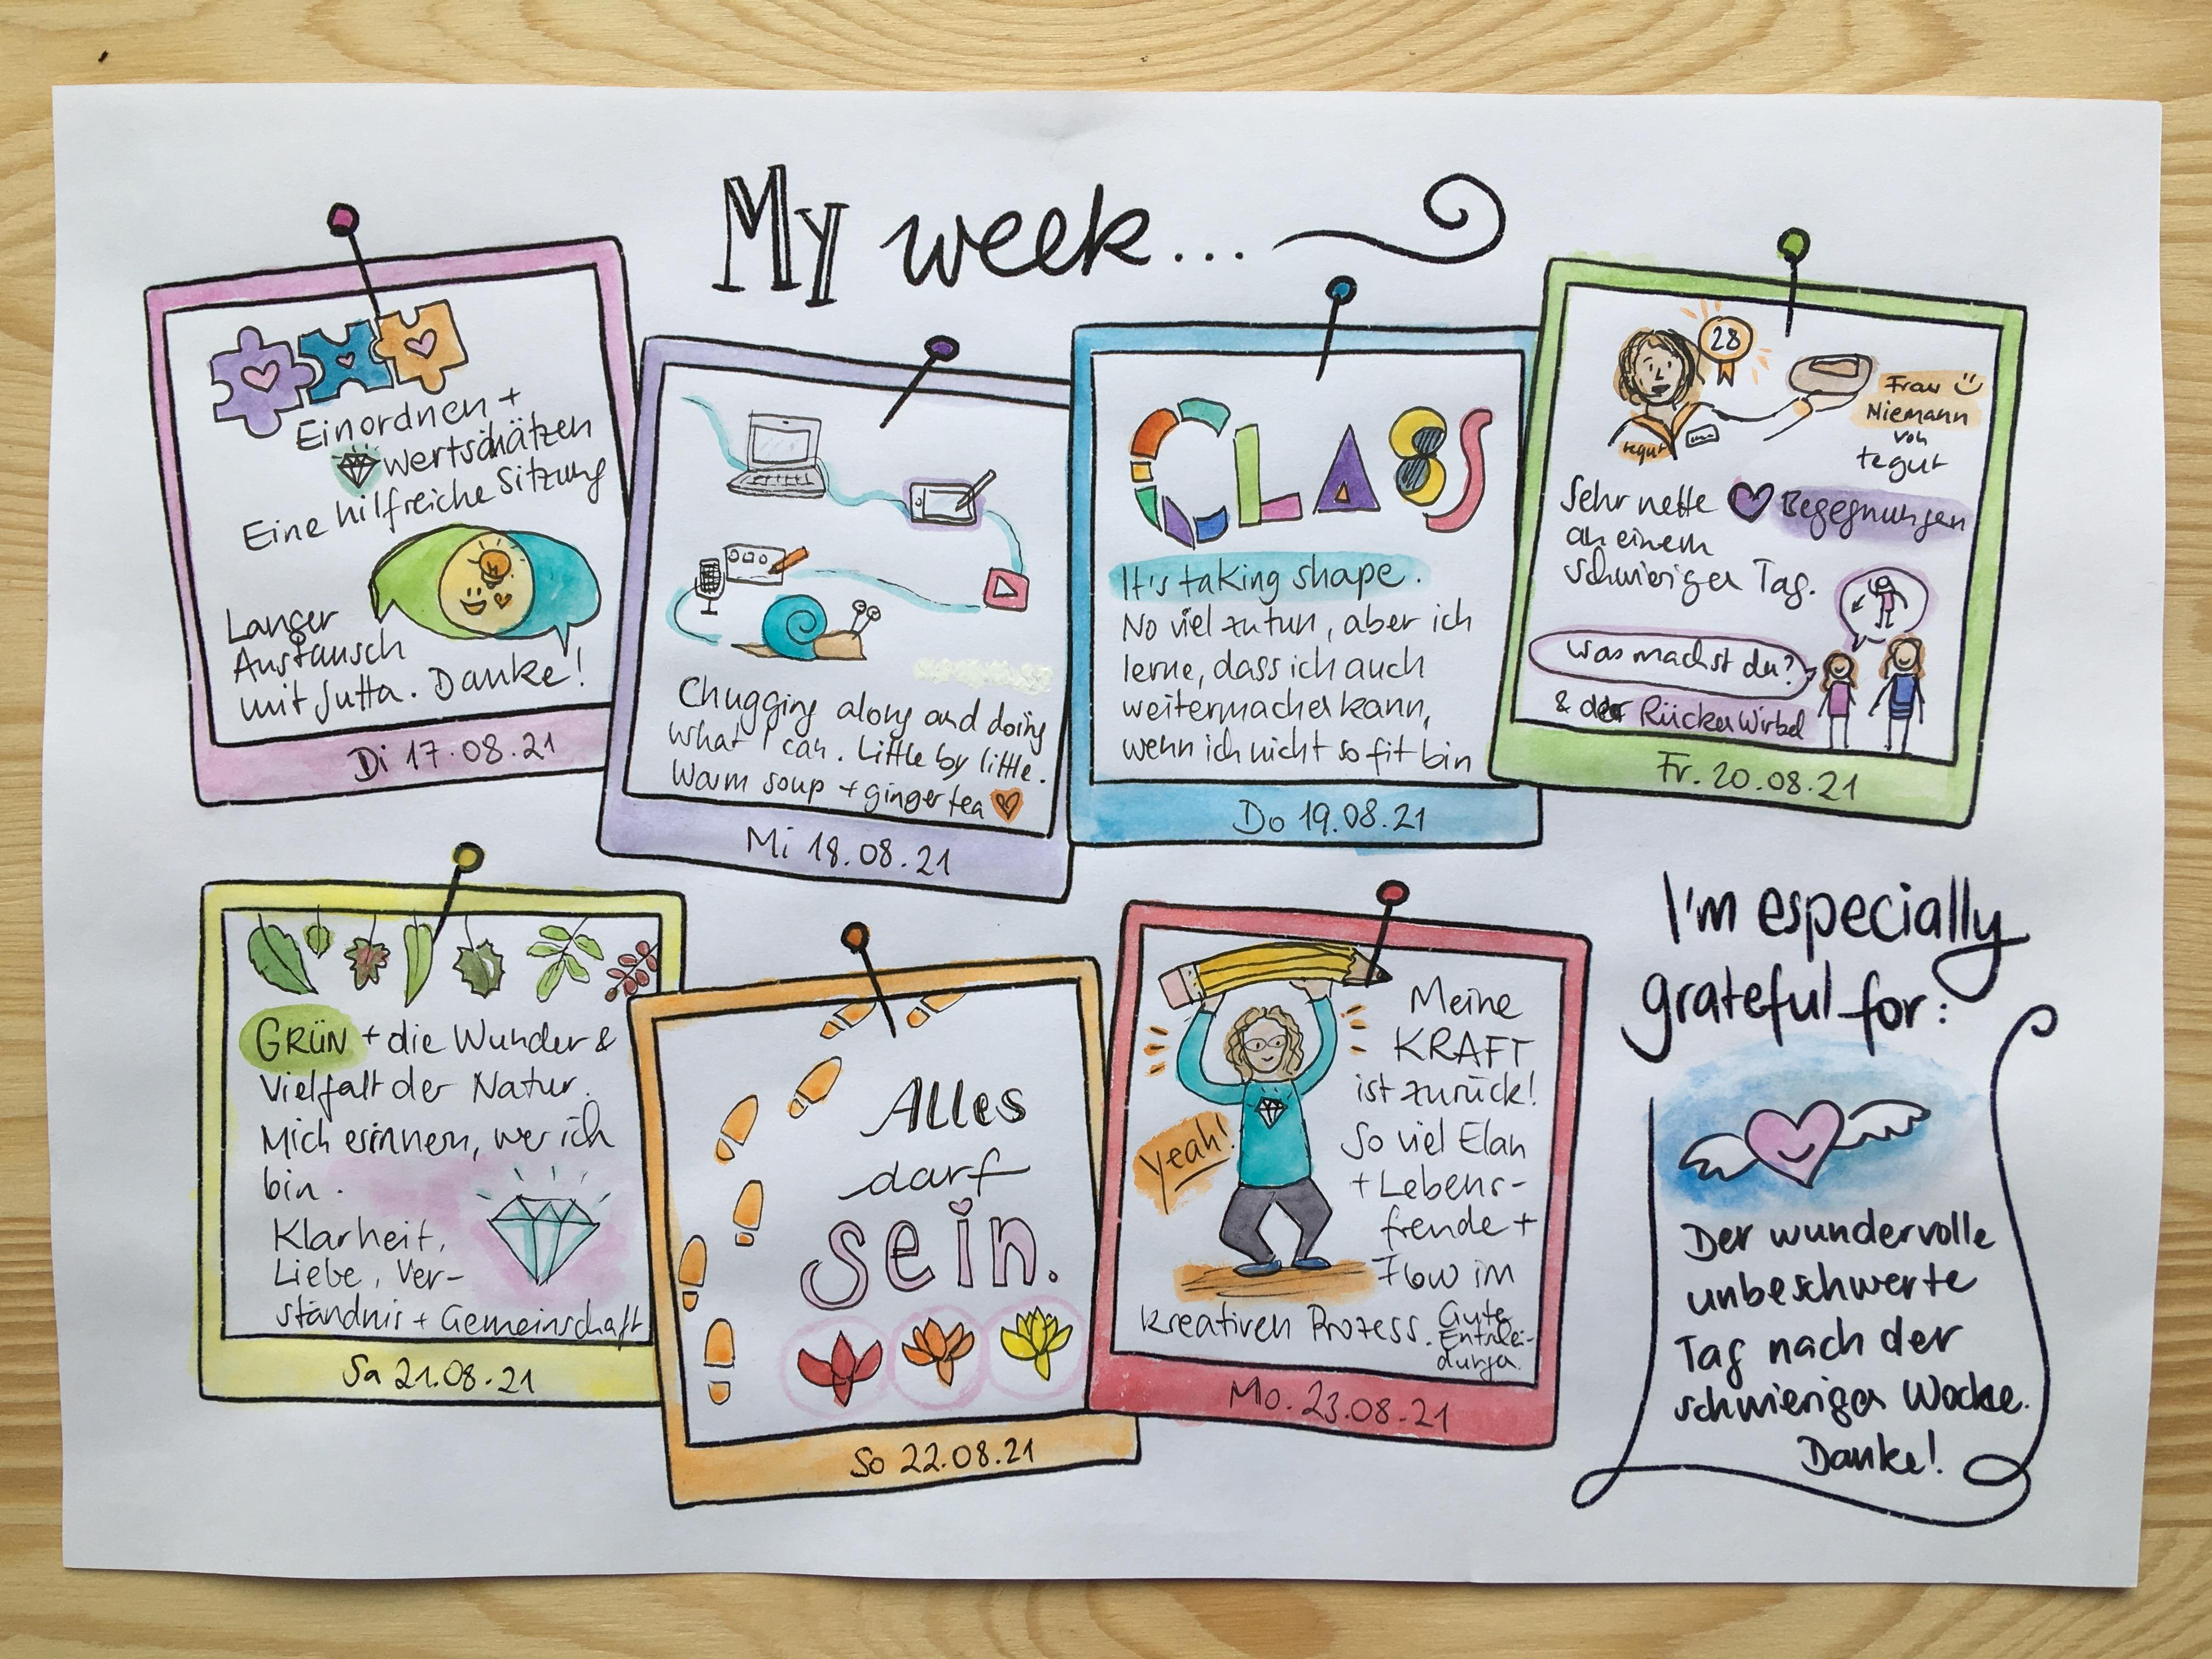 My week...
Einordnen +
wertschätzen
Eine hilfreiche Sitzung
Langer
Austausch
mit Jutta. Danke!
Di 17.08.21
Chugging along and doing
what I can. Little by little.
Warm soup + ginger tea
Mi 18.08.21
CLASS
It's taking shape.
No viel zu tun, aber ich
lerne, dass ich auch
weitermachen kann,
wenn ich nicht so fit bin
Do 19.08.21
28
tegut
Frau
Niemann
von
tegut
Sehr nette Begegnungen
an einem
schwierigen Tag.
Was machst du?
& der Rückenwirbel
Fr. 20.08.21
GRÜN + die Wunder &
Vielfalt der Natur.
Mich erinnern, wer ich
bin.
Klarheit,
Liebe, Ver-
ständnis + Gemeinschaft
Sa 21.08.21
Alles
darf
sein.
So 22.08.21
Yeah!
Meine
KRAFT
ist zurück!
So viel Elan
+ Lebens-
freude +
Flow im
kreativen Prozess. Gute
Entschei-
dungen.
Mo. 23.08.21
I'm especially
grateful for:
Der wundervolle
unbeschwerte
Tag nach der
schwierigen Woche.
Danke!